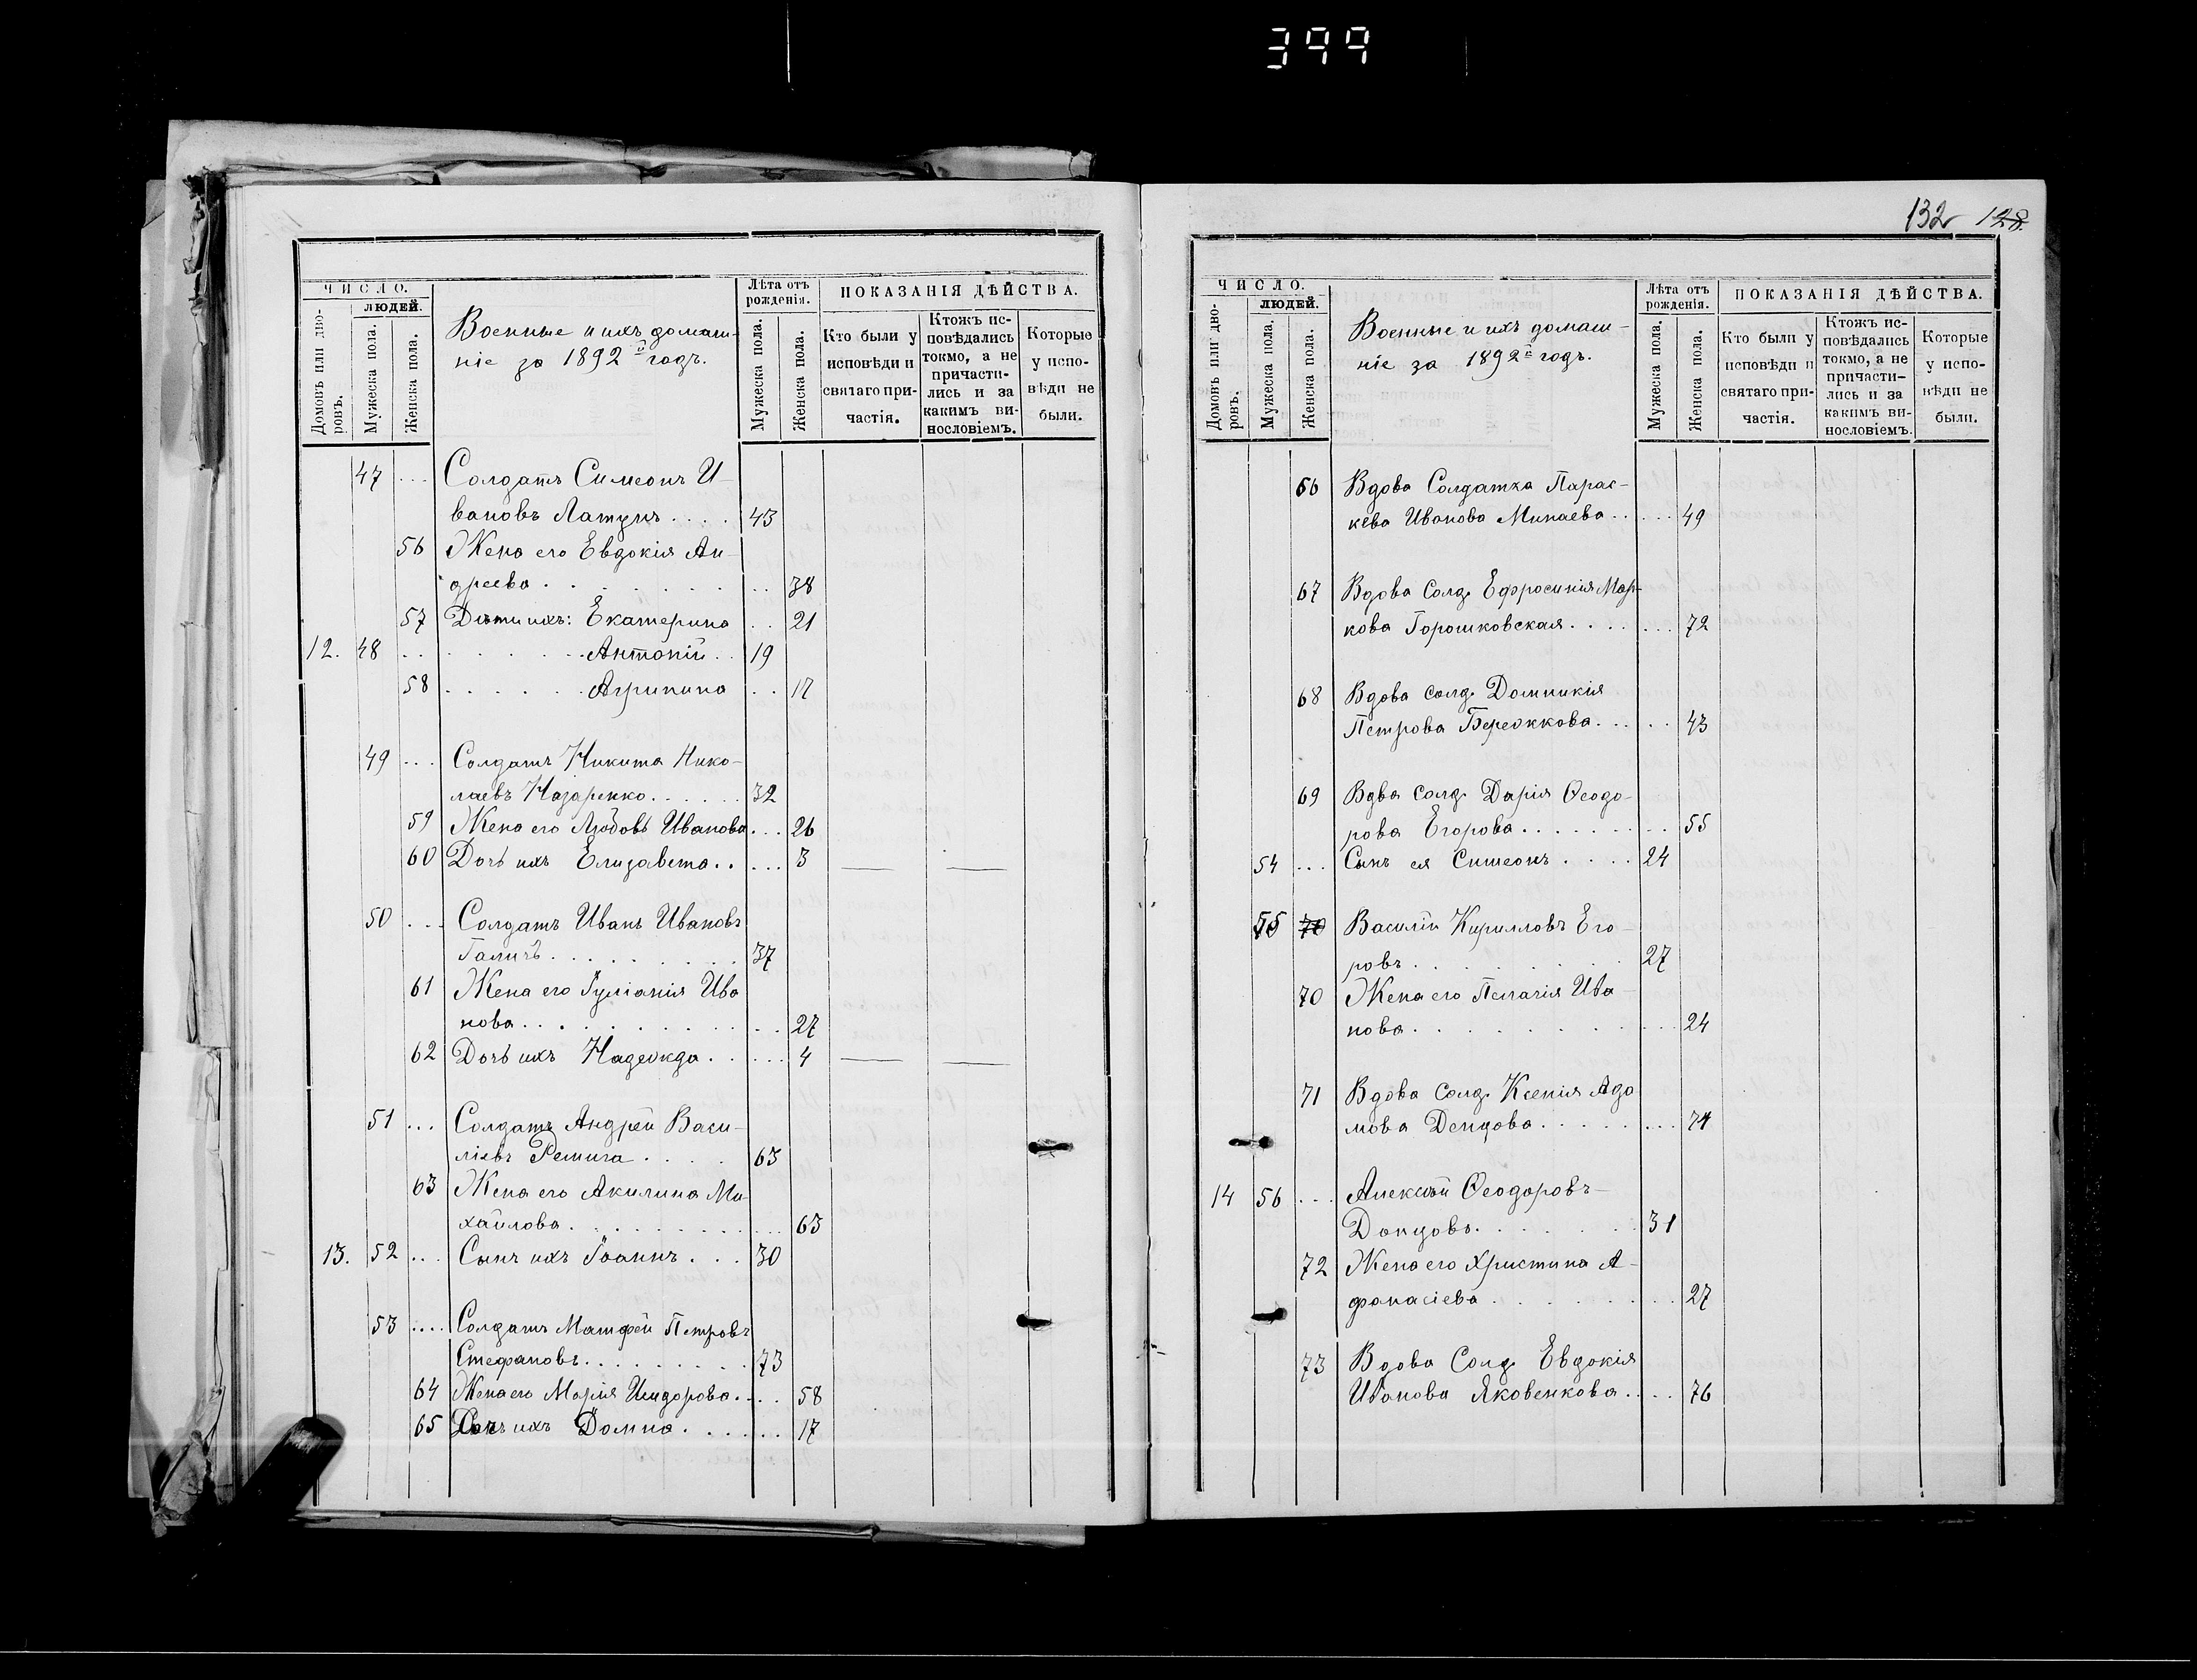 399
ЧИСЛО.
ЛЮДЕЙ.
Домовъ или дво-
ровъ.
Мужеска пола.
Женска пола.
Военные и ихъ домаш-
ніе за 1892й годъ.
Лѣта отъ
рожденія.
Мужеска пола.
Женска пола.
ПОКАЗАНІЯ ДѢЙСТВА.
Кто были у
исповѣди и
святаго при-
частія.
Ктожъ ис-
повѣдались
токмо, а не
причасти-
лись и за
какимъ ви-
нословіемъ.
Которые
у испо-
вѣди не
были.
47 ... Солдатъ Симеонъ И-
вановъ Латунъ .... 43
56 Жена его Евдокія Ан-
дреева ........ 38
57 Дѣти ихъ: Екатерина .. 21
12. 48 ........ Антоній .. 19
58 ...... Агрипина .. 17
49 ... Солдатъ Никита Нико-
лаевъ Назаренко ...... 32
59 Жена его Любовь Иванова ... 26
60 Дочь ихъ Елизавета ..... 3 — —
50 ... Солдатъ Иванъ Ивановъ
Галичъ ......... 37
61 Жена его Іуліанія Ива
нова ............ 27
62 Дочь ихъ Надежда ..... 4 — —
51 ... Солдатъ Андрей Васи-
ліевъ Ремига .... 63
63 Жена его Акилина Ми-
хайлова ........... 63
13. 52 ... Сынъ ихъ Іоаннъ ... 30
53 .... Солдатъ Матфей Петровъ
Стефановъ ......... 73
64 Жена его Марія Исидорова .... 58
65 Дочь ихъ Домна ....... 17
132 128.
ЧИСЛО.
ЛЮДЕЙ.
Домовъ или дво-
ровъ.
Мужеска пола.
Женска пола.
Военные и ихъ домаш-
ніе за 1892й годъ.
Лѣта отъ
рожденія.
Мужеска пола.
Женска пола.
ПОКАЗАНІЯ ДѢЙСТВА.
Кто были у
исповѣди и
святаго при-
частія.
Ктожъ ис-
повѣдались
токмо, а не
причасти-
лись и за
какимъ ви-
нословіемъ.
Которые
у испо-
вѣди не
были.
66 Вдова Солдатка Парас-
кева Иванова Минаева ..... 49
67 Вдова Солд. Ефросинія Мар-
кова Горошковская ....... 72
68 Вдова солд. Домникія
Петрова Бережкова ..... 43
69 Вдва солд. Дарія Ѳеодо-
рова Егорова ......... 55
54 ... Сынъ ея Симеонъ .... 24
55 70 Василій Кирилловъ Его-
ровъ ........ 27
70 Жена его Пелагія Ива-
нова .......... 24
71 Вдова Солд. Ксенія Ада
мова Денцова ........ 74
14 56 ... Алексѣй Ѳеодоровъ
Донцовъ ....... 31
72 Жена его Христина А-
фанасіева ........ 27
73 Вдова Солд. Евдокія
Иванова Яковенкова .... 76